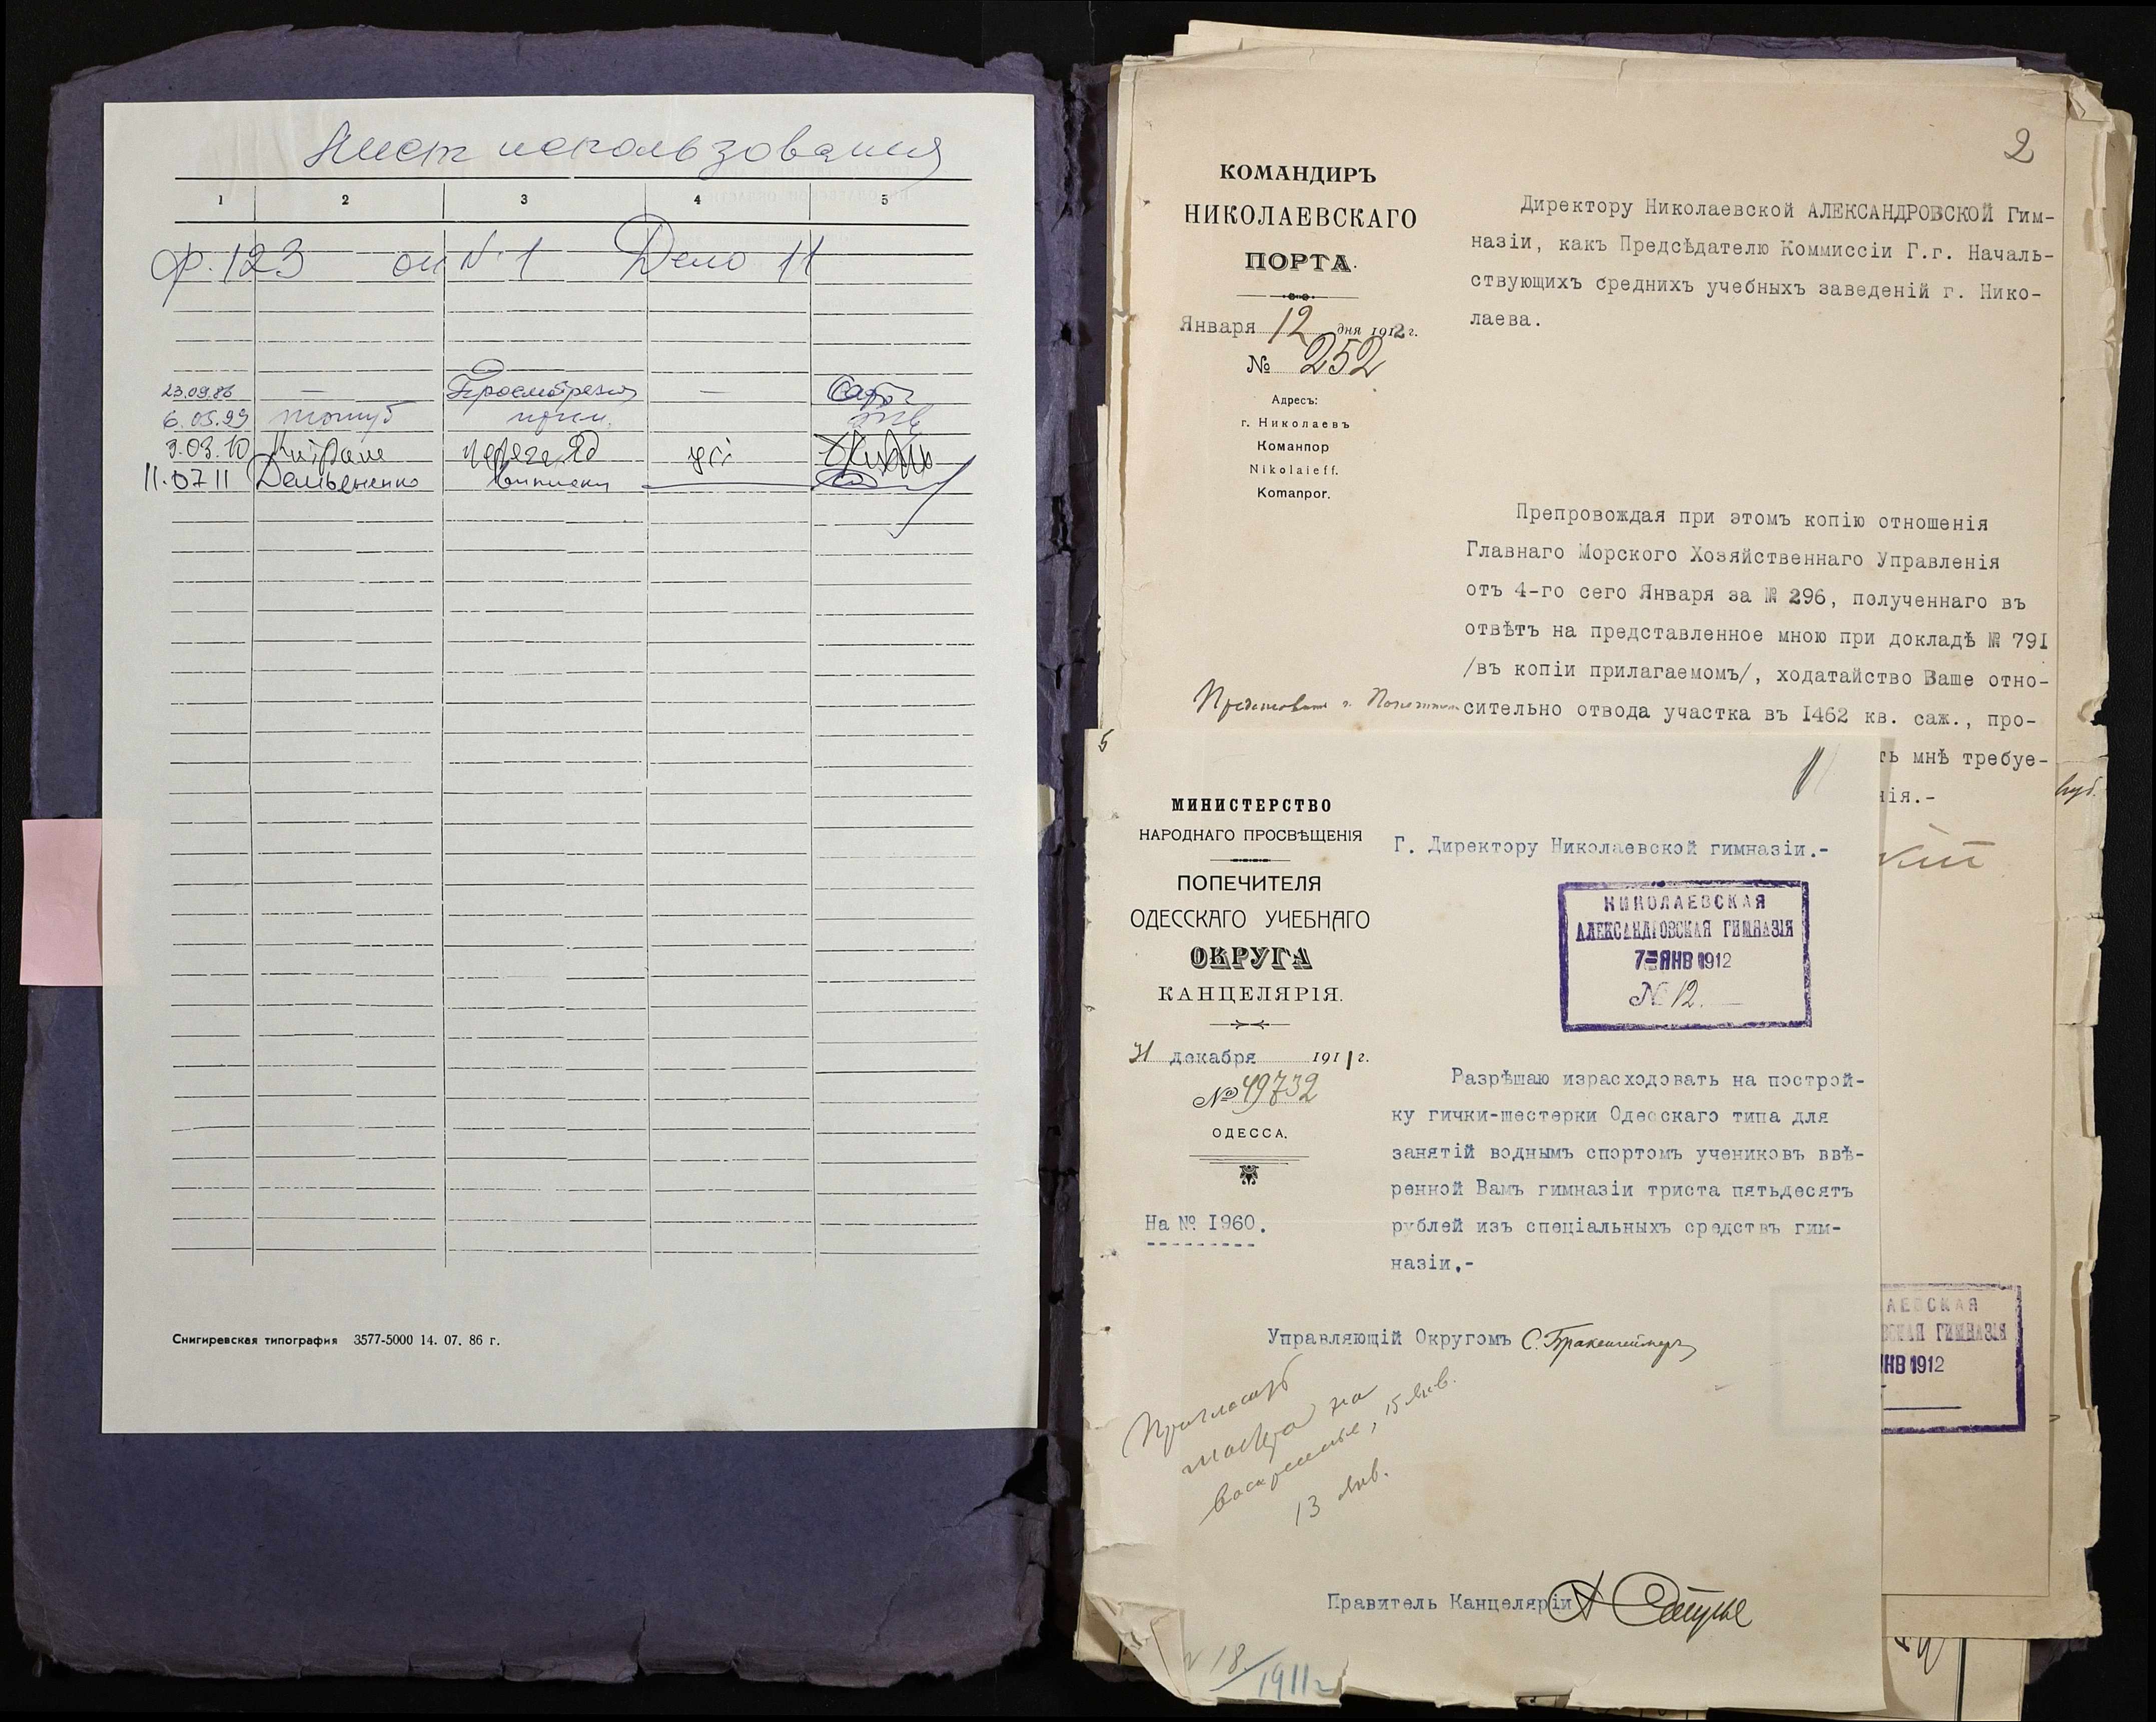 Лист использования
1 2 3 4 5
ф. 123 оп N. 1 Дело 11
23.09.86 — Просмотрено —
6.05.99
3.03.10 усі
11.07 11 Демьяненко виписки
Снигиревская типография 3577-5000 14. 07. 86 г.
2
КОМАНДИРЪ
НИКОЛАЕВСКАГО
ПОРТА.
Января 12 дня 1912 г.
№ 252
Адресъ:
г. Николаевъ
Команпор
Nikolaieff.
Komanpor.
Директору Николаевской АЛЕКСАНДРОВСКОЙ Гим-
назіи, какъ Предсѣдателю Коммиссіи Г.г. Началь-
ствующихъ среднихъ учебныхъ заведеній г. Нико-
лаева.
Препровождая при этомъ копію отношенія
Главнаго Морского Хозяйственнаго Управленія
отъ 4-го сего Января за № 296, полученнаго въ
отвѣтъ на представленное мною при докладѣ № 791
/въ копіи прилагаемомъ/, ходатайство Ваше отно-
сительно отвода участка въ I462 кв. саж., про-
ть мнѣ требуе-
нія.-
кій
АЕВСКАЯ
ВСКАЯ ГИМНАЗІЯ
НВ 1912
5
МИНИСТЕРСТВО
НАРОДНАГО ПРОСВѢЩЕНІЯ
ПОПЕЧИТЕЛЯ
ОДЕССКАГО УЧЕБНАГО
ОКРУГА
КАНЦЕЛЯРІЯ.
31 декабря 1911 г.
№ 49732
ОДЕССА.
На № I960.
Г. Директору Николаевской гимназіи.-
НИКОЛАЕВСКАЯ
АЛЕКСАНДРОВСКАЯ ГИМНАЗІЯ
7 ЯНВ 1912
№ 12.
Разрѣшаю израсходовать на построй-
ку гички-шестерки Одесскаго типа для
занятій воднымъ спортомъ учениковъ ввѣ-
ренной Вамъ гимназіи триста пятьдесятъ
рублей изъ спеціальныхъ средствъ гим-
назіи.-
Управляющій Округомъ С. Бракенгеймеръ
Пригласить
мастера на
воскресенье, 15 Янв.
13 Янв.
Правитель Канцеляріи
18/1911 г